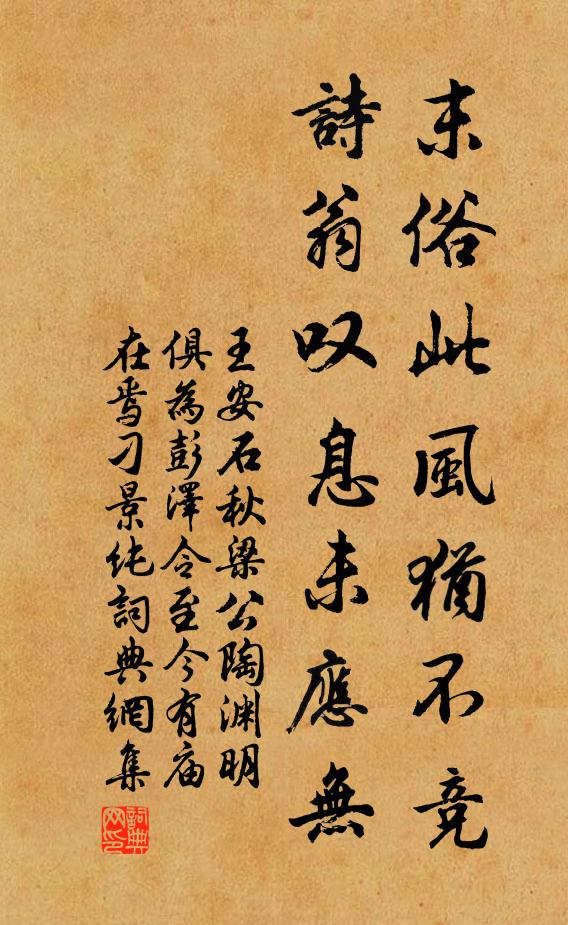 末俗此風猶不競
詩翁叹息未應無
王安石狄梁公陶渊明
俱為彭澤令至今有庙
在焉刁景純詞典網集
詞典
网印